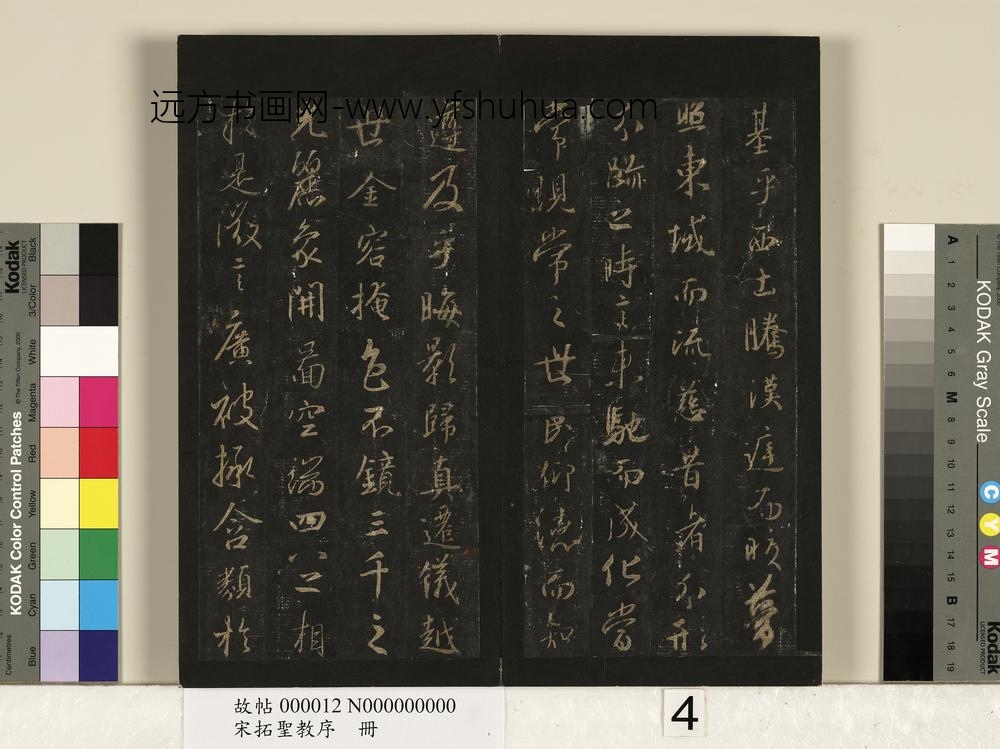 远方书画网-www.yfshuhua.com
基乎西土騰漢庭而皎夢
照東域而流慈昔者分形
分跡之時言未馳而成化當
常現常之世民仰德而知
遵及乎晦影歸真遷儀越
世金容掩色不鏡三千之
光麗象開圖空端四八之相
於是微言廣被拯含類於
KODAK Color Control Patches
Kodak
LICENSED PRODUCT
© The Tiffen Company, 2000
Centimetres
Blue
Cyan
Green
Yellow
Red
Magenta
White
3/Color
Black
KODAK Gray Scale
C
Y
M
Kodak
LICENSED PRODUCT
A
1
2
3
4
5
6
M
8
9
10
11
12
13
14
15
B
17
18
19
故帖 000012 N000000000
宋拓聖教序 冊
4